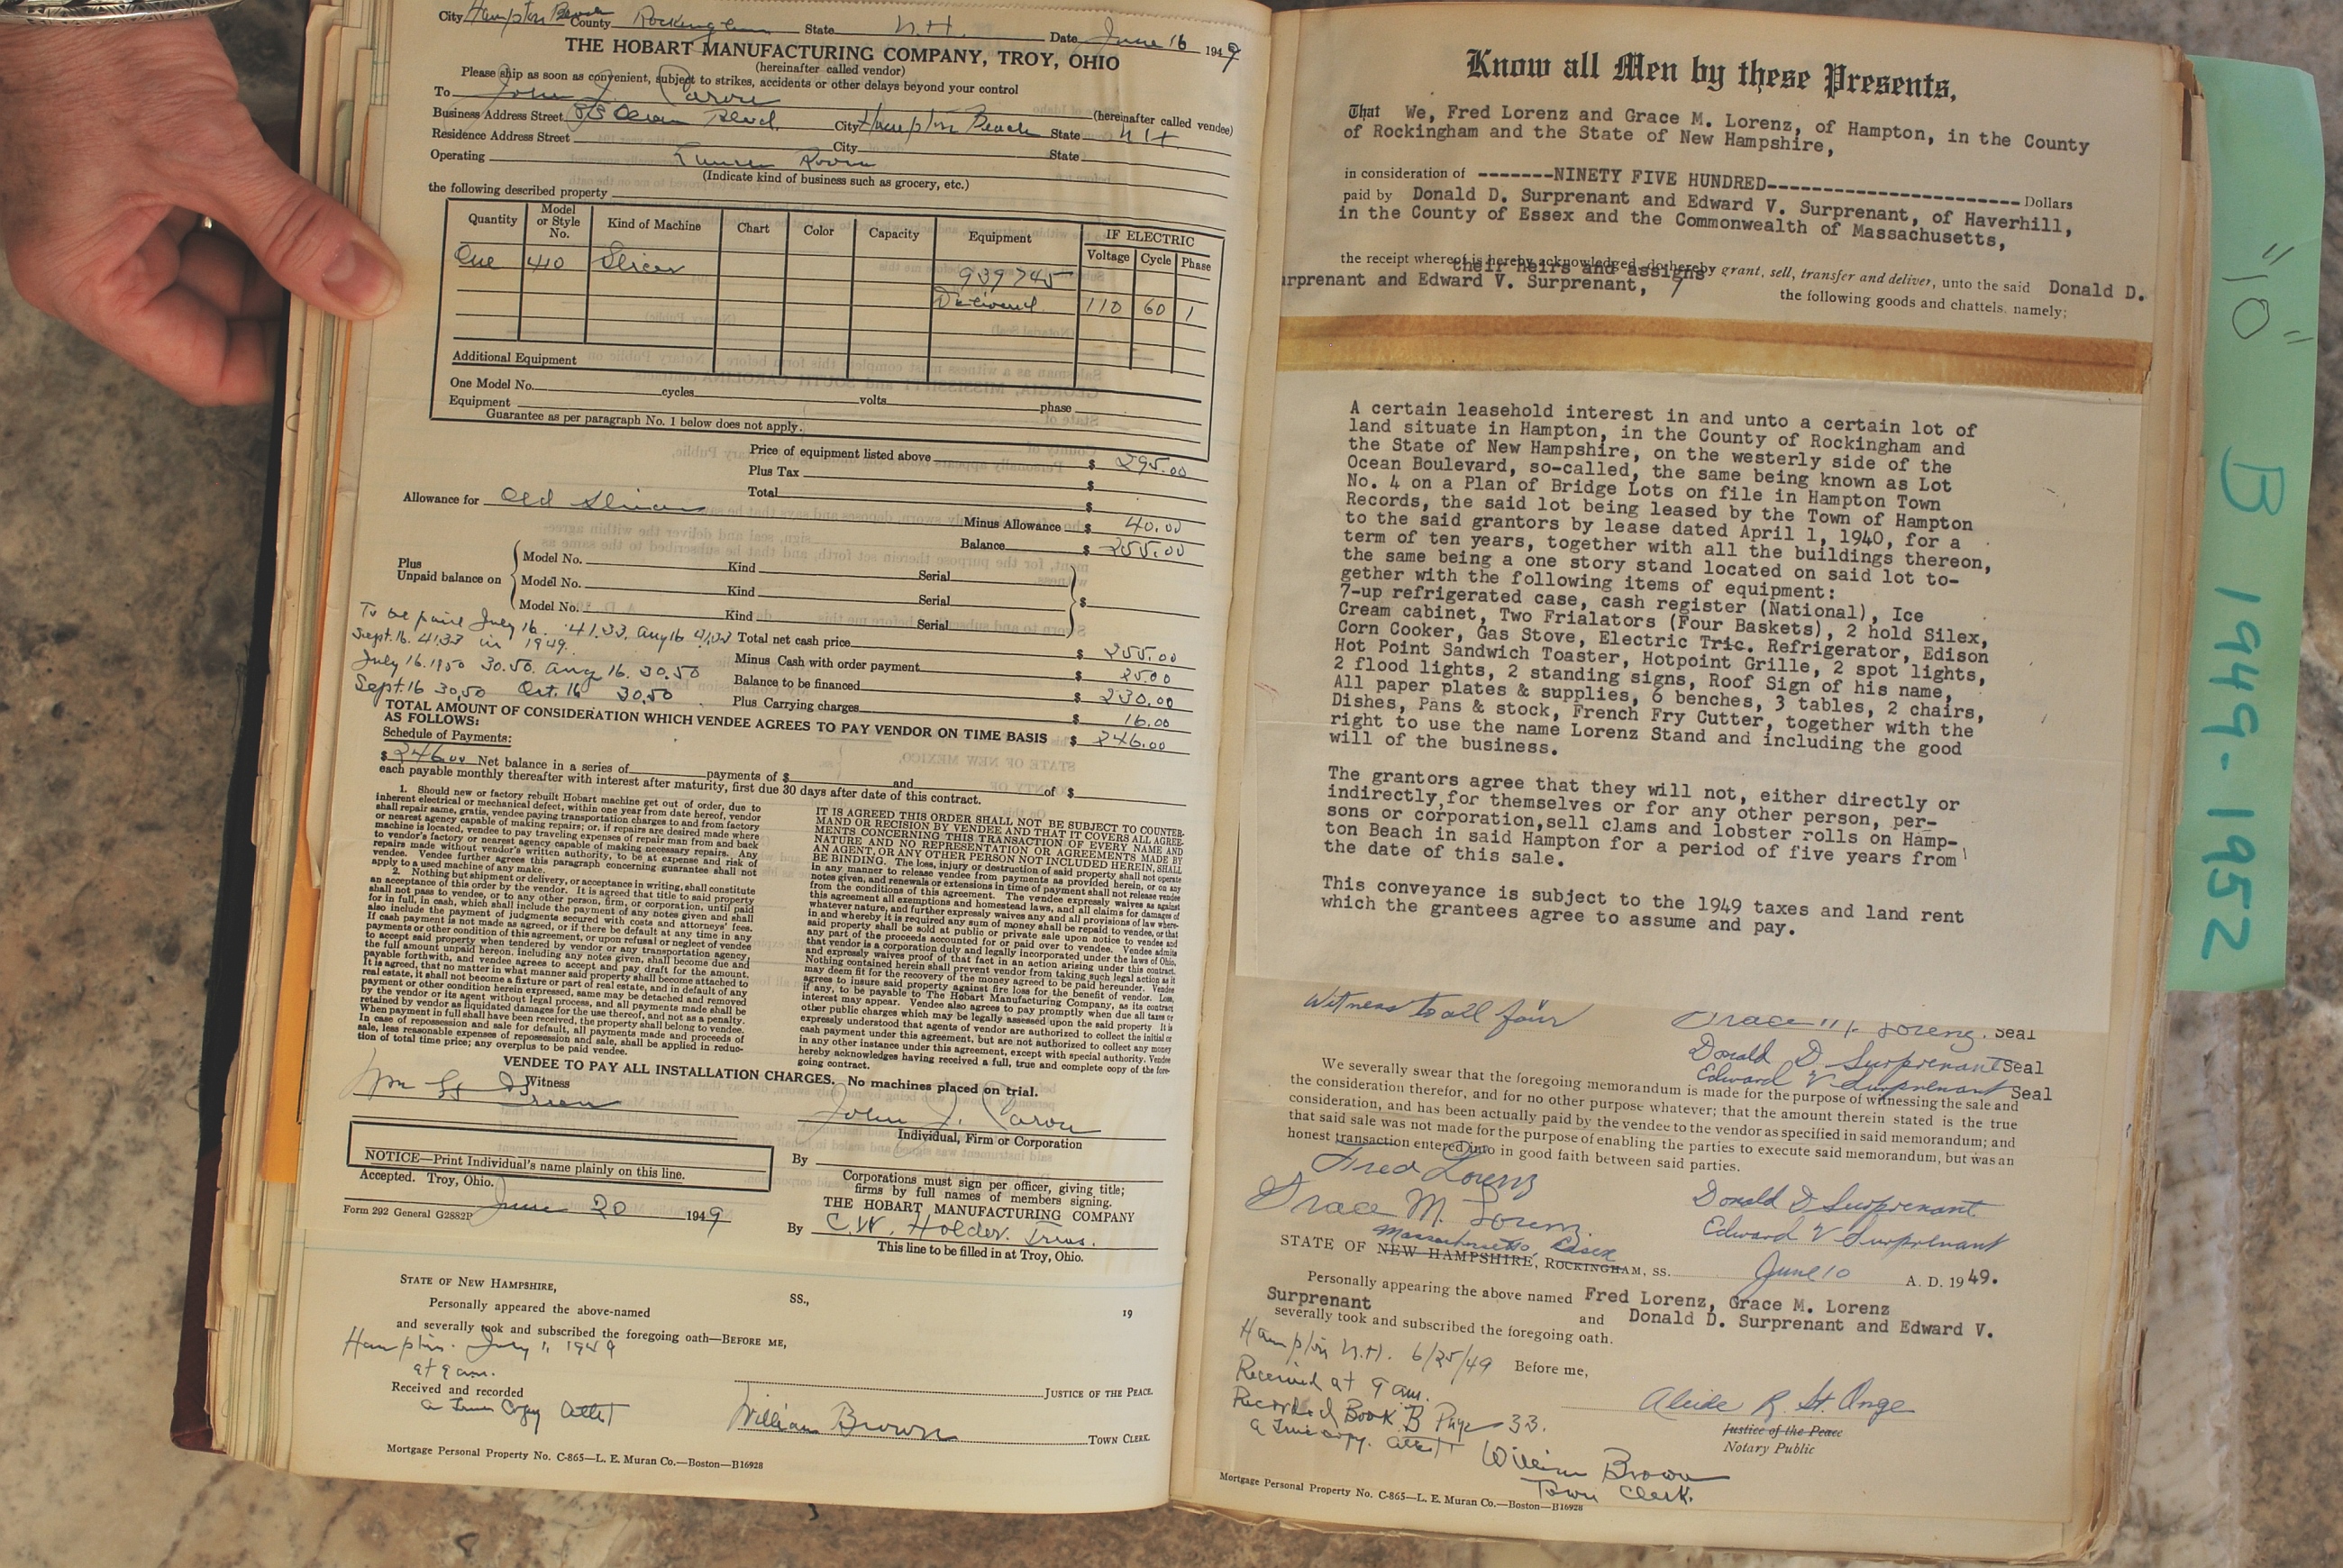 City Hampton Beach County Rockingham State N.H. Date June 16 1949
THE HOBART MANUFACTURING COMPANY, TROY, OHIO
(hereinafter called vendor)
Please ship as soon as convenient, subject to strikes, accidents or other delays beyond your control
To John J. Caron (hereinafter called vendee)
Business Address Street Ocean Blvd. City Hampton Beach State N.H.
Residence Address Street City State
Operating Room
(Indicate kind of business such as grocery, etc.)
the following described property
Quantity Model or Style No. Kind of Machine Chart Color Capacity Equipment IF ELECTRIC
Voltage Cycle Phase
One 410 Slicer 939745
Delivered 110 60 1
Additional Equipment
One Model No. cycles volts phase
Equipment
Guarantee as per paragraph No. 1 below does not apply.
Price of equipment listed above $ 295.00
Plus Tax $
Total $
Allowance for Old Slicer Minus Allowance $ 40.00
Balance $ 255.00
Plus Unpaid balance on
Model No. Kind Serial
Model No. Kind Serial $
Model No. Kind Serial
To be paid July 16. 41.33. Aug 16 41.33
Sept. 16. 41.33 in 1949.
July 16. 1950 30.50. Aug 16. 30.50
Sept. 16 30.50 Oct. 16 30.50
Total net cash price $ 255.00
Minus Cash with order payment $ 25.00
Balance to be financed $ 230.00
Plus Carrying charges $ 16.00
TOTAL AMOUNT OF CONSIDERATION WHICH VENDEE AGREES TO PAY VENDOR ON TIME BASIS $ 246.00
AS FOLLOWS:
Schedule of Payments:
$ 246.00 Net balance in a series of payments of $ and of $
each payable monthly thereafter with interest after maturity, first due 30 days after date of this contract.
1. Should new or factory rebuilt Hobart machine get out of order, due to
inherent electrical or mechanical defect, within one year from date hereof, vendor
shall repair same, gratis, vendee paying transportation charges to and from factory
or nearest agency capable of making repairs; or, if repairs are desired made where
machine is located, vendee to pay traveling expenses of repair man from and back
to vendor's factory or nearest agency capable of making necessary repairs. Any
repairs made without vendor's written authority, to be at expense and risk of
vendee. Vendee further agrees this paragraph concerning guarantee shall not
apply to a used machine of any make.
2. Nothing but shipment or delivery, or acceptance in writing, shall constitute
an acceptance of this order by the vendor. It is agreed that title to said property
shall not pass to vendee, or to any other person, firm, or corporation, until paid
for in full, in cash, which shall include the payment of any notes given and shall
also include the payment of judgments secured with costs and attorneys' fees.
If cash payment is not made as agreed, or if there be default at any time in any
payments or other condition of this agreement, or upon refusal or neglect of vendee
to accept said property when tendered by vendor or any transportation agency,
the full amount unpaid hereon, including any notes given, shall become due and
payable forthwith, and vendee agrees to accept and pay draft for the amount.
It is agreed, that no matter in what manner said property shall become attached to
real estate, it shall not become a fixture or part of real estate, and in default of any
payment or other condition herein expressed, same may be detached and removed
by the vendor or its agent without legal process, and all payments made shall be
retained by vendor as liquidated damages for the use thereof, and not as a penalty.
When payment in full shall have been received, the property shall belong to vendee.
In case of repossession and sale for default, all payments made and proceeds of
sale, less reasonable expenses of repossession and sale, shall be applied in reduc-
tion of total time price; any overplus to be paid vendee.
IT IS AGREED THIS ORDER SHALL NOT BE SUBJECT TO COUNTER-
MAND OR RECISION BY VENDEE AND THAT IT COVERS ALL AGREE-
MENTS CONCERNING THIS TRANSACTION OF EVERY NAME AND
NATURE AND NO REPRESENTATION OR AGREEMENTS MADE BY
AN AGENT, OR ANY OTHER PERSON NOT INCLUDED HEREIN, SHALL
BE BINDING. The loss, injury or destruction of said property shall not operate
in any manner to release vendee from payments as provided herein, or on any
notes given, and renewals or extensions in time of payment shall not release vendee
from the conditions of this agreement. The vendee expressly waives as against
this agreement all exemptions and homestead laws, and all claims for damages of
whatever nature, and further expressly waives any and all provisions of law where-
in and whereby it is required any sum of money shall be repaid to vendee, or that
said property shall be sold at public or private sale upon notice to vendee and
any part of the proceeds accounted for or paid over to vendee. Vendee admits
that vendor is a corporation duly and legally incorporated under the laws of Ohio,
and expressly waives proof of that fact in an action arising under this contract.
Nothing contained herein shall prevent vendor from taking such legal action as it
may deem fit for the recovery of the money agreed to be paid hereunder. Vendee
agrees to insure said property against fire loss for the benefit of vendor. Loss,
if any, to be payable to The Hobart Manufacturing Company, as its contract
interest may appear. Vendee also agrees to pay promptly when due all taxes or
other public charges which may be legally assessed upon the said property. It is
expressly understood that agents of vendor are authorized to collect the initial or
cash payment under this agreement, but are not authorized to collect any money
in any other instance under this agreement, except with special authority. Vendee
hereby acknowledges having received a full, true and complete copy of the fore-
going contract.
VENDEE TO PAY ALL INSTALLATION CHARGES. No machines placed on trial.
Witness
John J. Caron
Individual, Firm or Corporation
NOTICE—Print Individual's name plainly on this line.
By
Corporations must sign per officer, giving title;
firms by full names of members signing.
Accepted. Troy, Ohio.
June 20 1949
THE HOBART MANUFACTURING COMPANY
Form 292 General G2882P
By C.W. Holder. Treas.
This line to be filled in at Troy, Ohio.
STATE OF NEW HAMPSHIRE,
SS., 19
Personally appeared the above-named
and severally took and subscribed the foregoing oath—BEFORE ME,
Hampton. July 1, 1949
at 9 am.
JUSTICE OF THE PEACE.
Received and recorded
a True Copy Attest
William Brown TOWN CLERK.
Mortgage Personal Property No. C-865—L. E. Muran Co.—Boston—B16928
Know all Men by these Presents,
That We, Fred Lorenz and Grace M. Lorenz, of Hampton, in the County
of Rockingham and the State of New Hampshire,
in consideration of -------NINETY FIVE HUNDRED------------------------ Dollars
paid by Donald D. Surprenant and Edward V. Surprenant, of Haverhill,
in the County of Essex and the Commonwealth of Massachusetts,
the receipt whereof is hereby acknowledged, do hereby grant, sell, transfer and deliver, unto the said Donald D.
their heirs and assigns
urprenant and Edward V. Surprenant,
the following goods and chattels, namely;
A certain leasehold interest in and unto a certain lot of
land situate in Hampton, in the County of Rockingham and
the State of New Hampshire, on the westerly side of the
Ocean Boulevard, so-called, the same being known as Lot
No. 4 on a Plan of Bridge Lots on file in Hampton Town
Records, the said lot being leased by the Town of Hampton
to the said grantors by lease dated April 1, 1940, for a
term of ten years, together with all the buildings thereon,
the same being a one story stand located on said lot to-
gether with the following items of equipment:
7-up refrigerated case, cash register (National), Ice
Cream cabinet, Two Frialators (Four Baskets), 2 hold Silex,
Corn Cooker, Gas Stove, Electric Tric. Refrigerator, Edison
Hot Point Sandwich Toaster, Hotpoint Grille, 2 spot lights,
2 flood lights, 2 standing signs, Roof Sign of his name,
All paper plates & supplies, 6 benches, 3 tables, 2 chairs,
Dishes, Pans & stock, French Fry Cutter, together with the
right to use the name Lorenz Stand and including the good
will of the business.
The grantors agree that they will not, either directly or
indirectly,for themselves or for any other person, per-
sons or corporation,sell clams and lobster rolls on Hamp-
ton Beach in said Hampton for a period of five years from
the date of this sale.
This conveyance is subject to the 1949 taxes and land rent
which the grantees agree to assume and pay.
Witness to all four
Grace M. Lorenz. Seal
Donald D Surprenant Seal
Edward V Surprenant Seal
We severally swear that the foregoing memorandum is made for the purpose of witnessing the sale and
the consideration therefor, and for no other purpose whatever; that the amount therein stated is the true
consideration, and has been actually paid by the vendee to the vendor as specified in said memorandum; and
that said sale was not made for the purpose of enabling the parties to execute said memorandum, but was an
honest transaction entered into in good faith between said parties.
Fred Lorenz
Grace M. Lorenz
Donald D Surprenant
Edward V Surprenant
Massachusetts, Essex
STATE OF NEW HAMPSHIRE, ROCKINGHAM, SS. June 10 A. D. 1949.
Personally appearing the above named Fred Lorenz, Grace M. Lorenz
Surprenant and Donald D. Surprenant and Edward V.
severally took and subscribed the foregoing oath.
Hampton N.H. 6/25/49 Before me,
Received at 9 am.
Recorded Book B Page 33.
a True copy. Attest
Alcide R. St. Onge
Justice of the Peace
Notary Public
William Brown
Town Clerk.
Mortgage Personal Property No. C-865—L. E. Muran Co.—Boston—B16928
"10" B 1949-1952